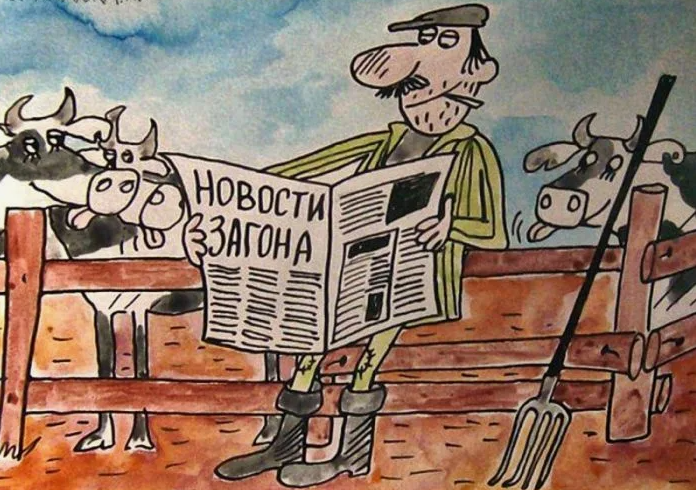 НОВОСТИ
ЗАГОНА